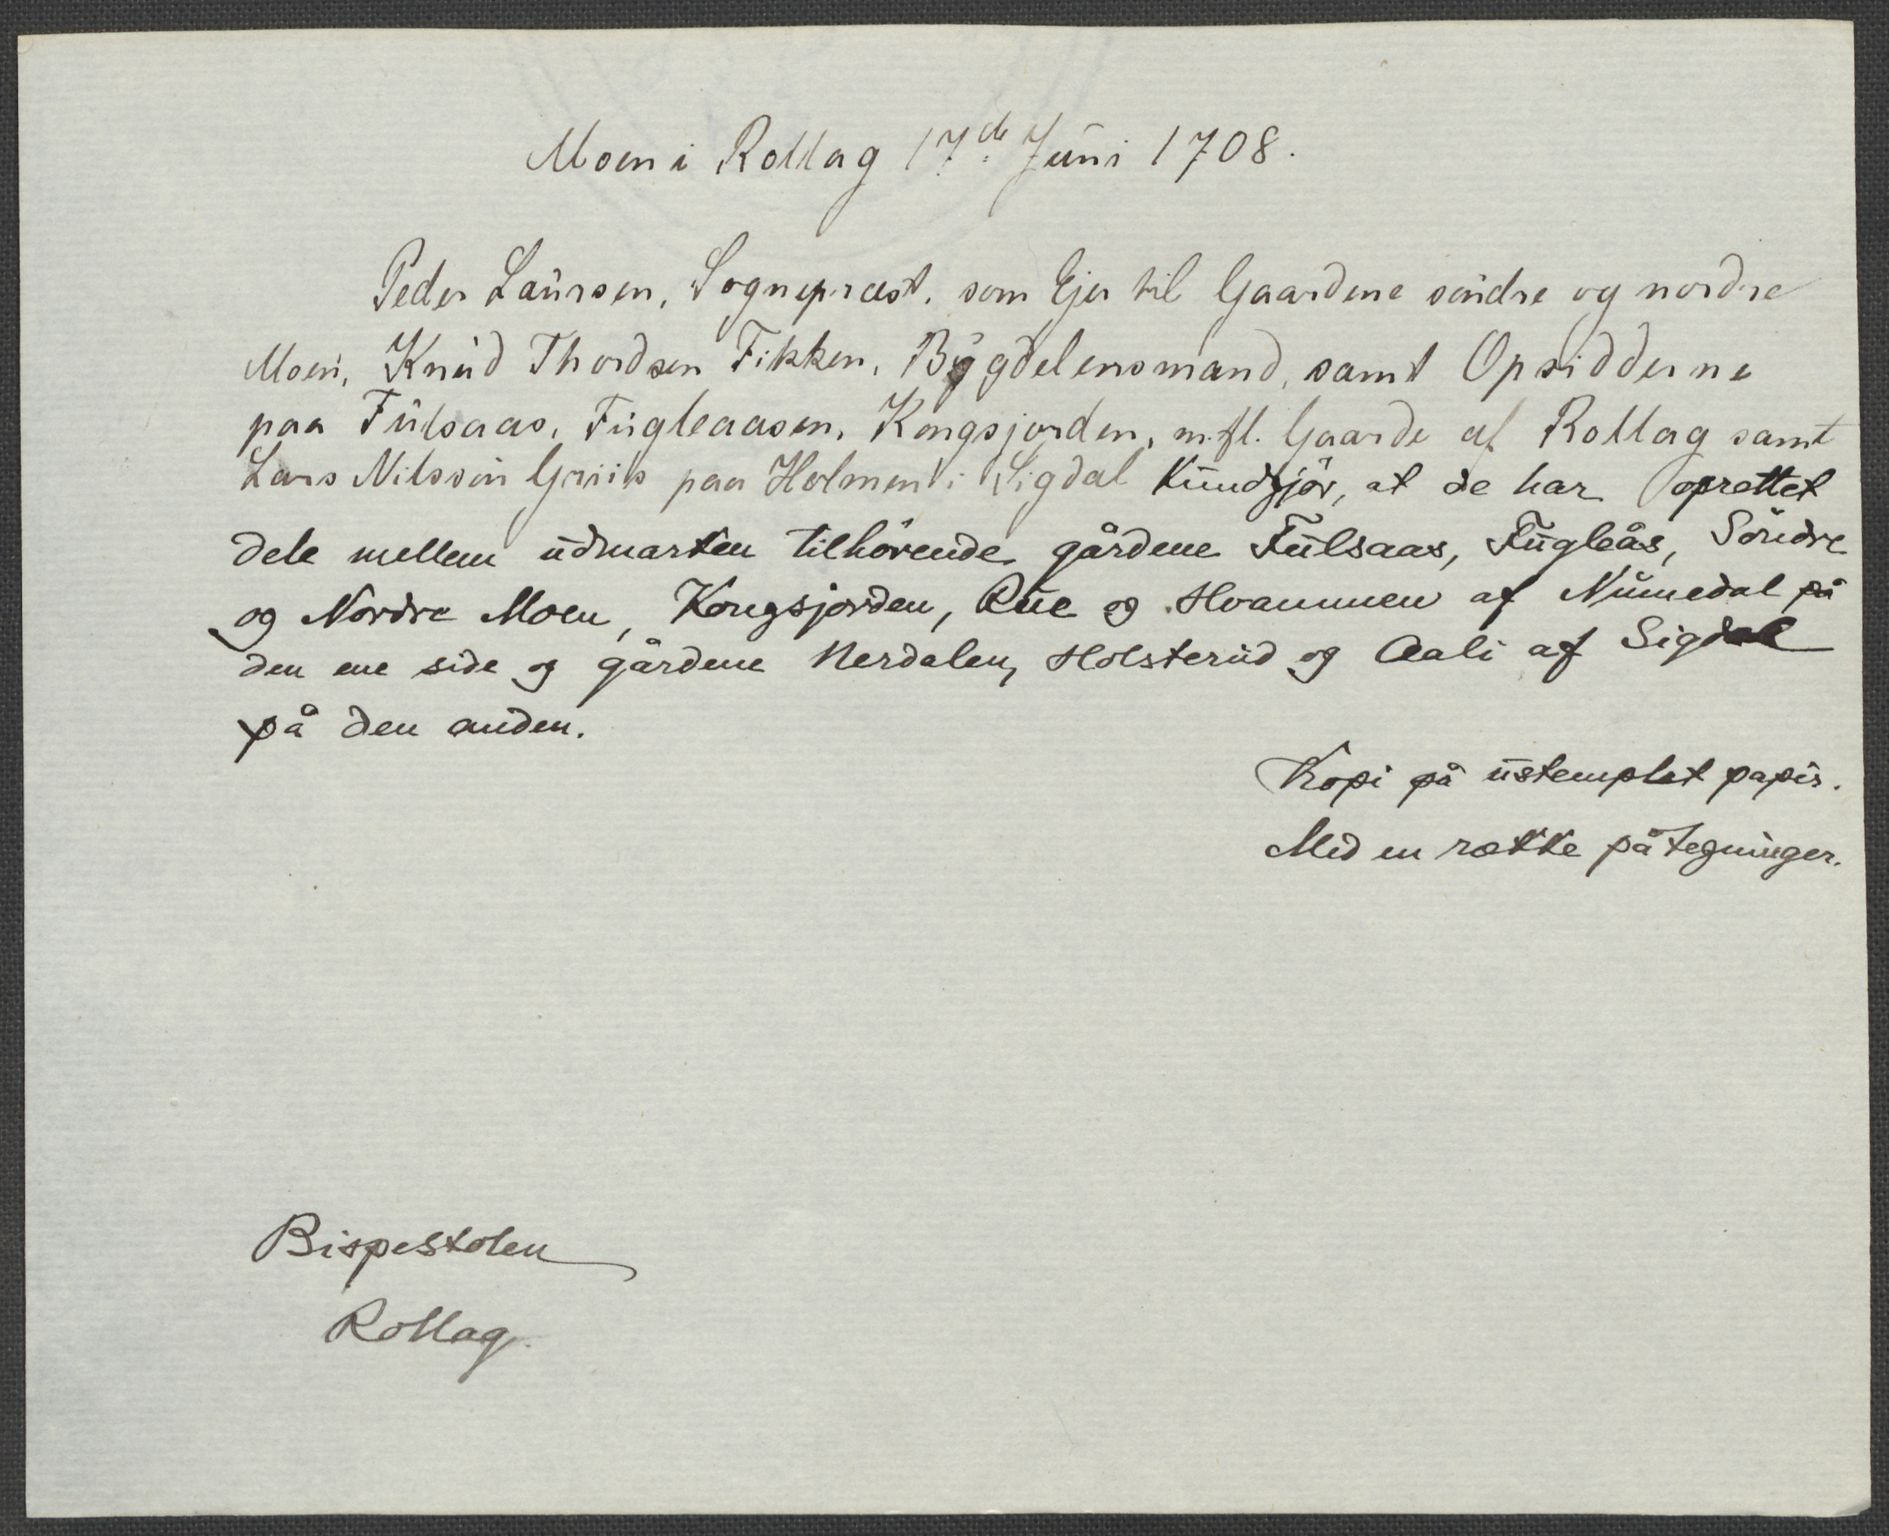 Moen i Rollag 17de Juni 1708.
Peder Laursen, Sognepræst, som Ejer til Gaardene söndre og nordre
Moen, Knud Thordsen Fikken, Bygdelensmand, samt Opsidderne
paa Fulsaas, Fugleaasen, Kongsjorden, m.fl. Gaarde af Rollag samt
Lars Nilssön Griis paa Holmen i Sigdal Kundgjör, at de har oprettet
dele mellem udmarken tilhörende gårdene Fulsaas, Fugleås, Söndre
og Nordre Moen, Kongsjorden, Rue og Hvammen af Numedal på
den ene side og gårdene Nerdalen, Holsterud og Aali af Sigdal
på den anden.
Kopi på ustemplet papir.
Med en række påtegninger.
Bispestolen
Rollag.